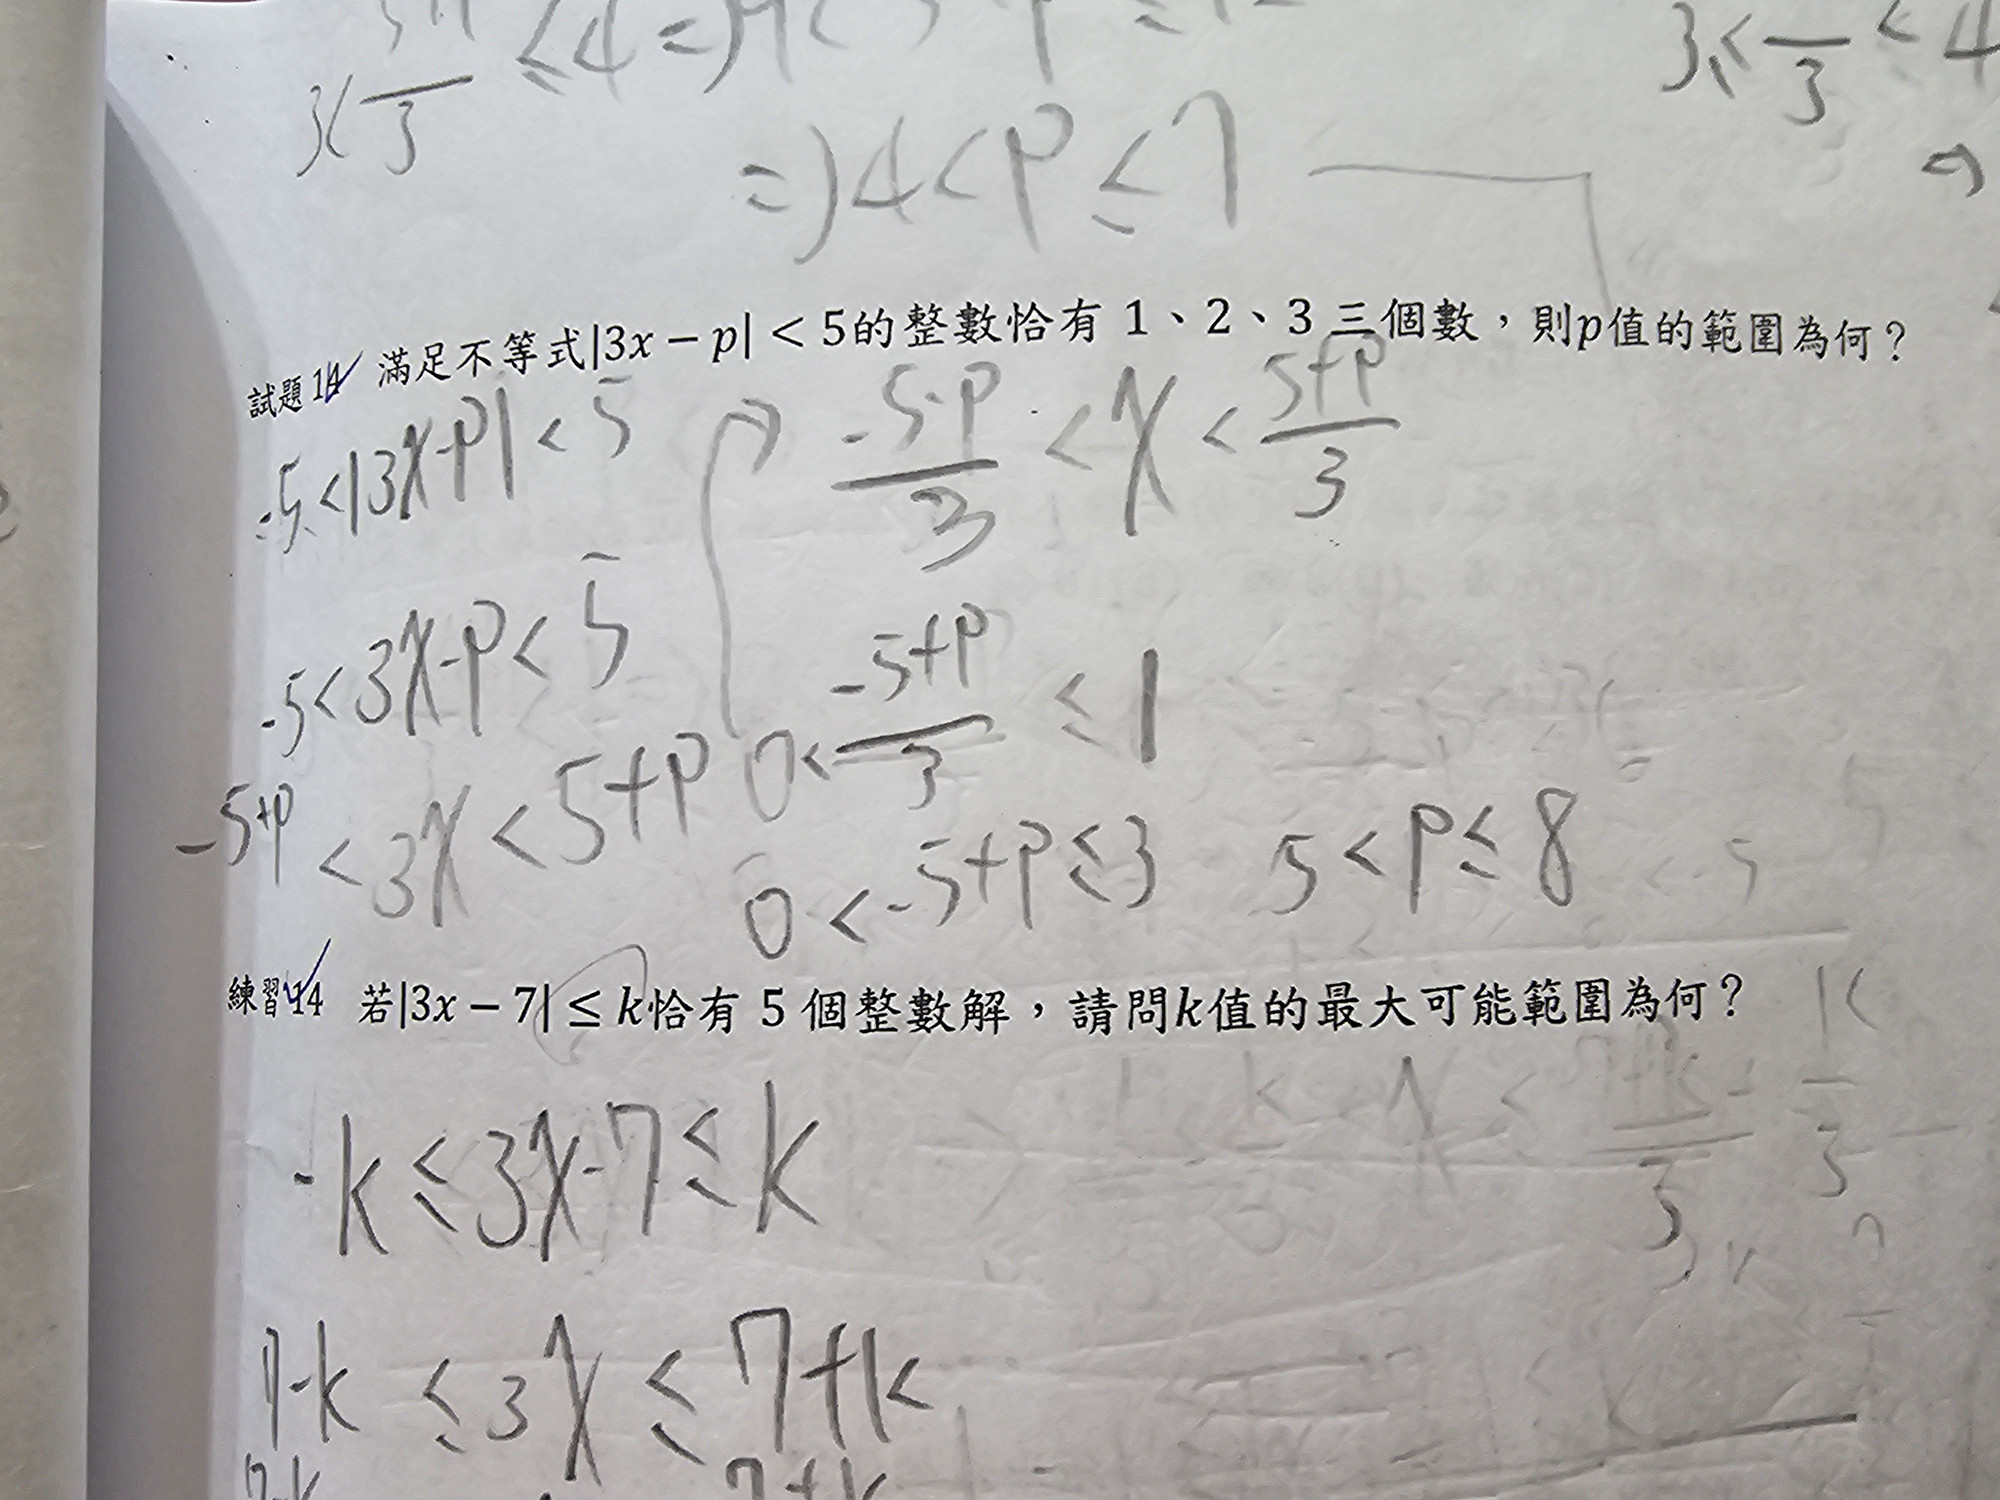 3<—/3 ≤4 =)
3≤—/3 ≤4
=) 4<p≤7
試題14 滿足不等式|3x − p| < 5的整數恰有 1、2、3 三個數，則p值的範圍為何？
-5<|3x-p|<5
(-5-p)/3 <x< (5+p)/3
-5<3x-p<5
0< (-5+p)/3 ≤1
-5+p <3x<5+p
0<-5+p≤3 5<p≤8
練習14 若|3x − 7| ≤ k恰有 5 個整數解，請問k值的最大可能範圍為何？
-k≤3x-7≤k
7-k ≤3x≤7+k
7-k 7+k